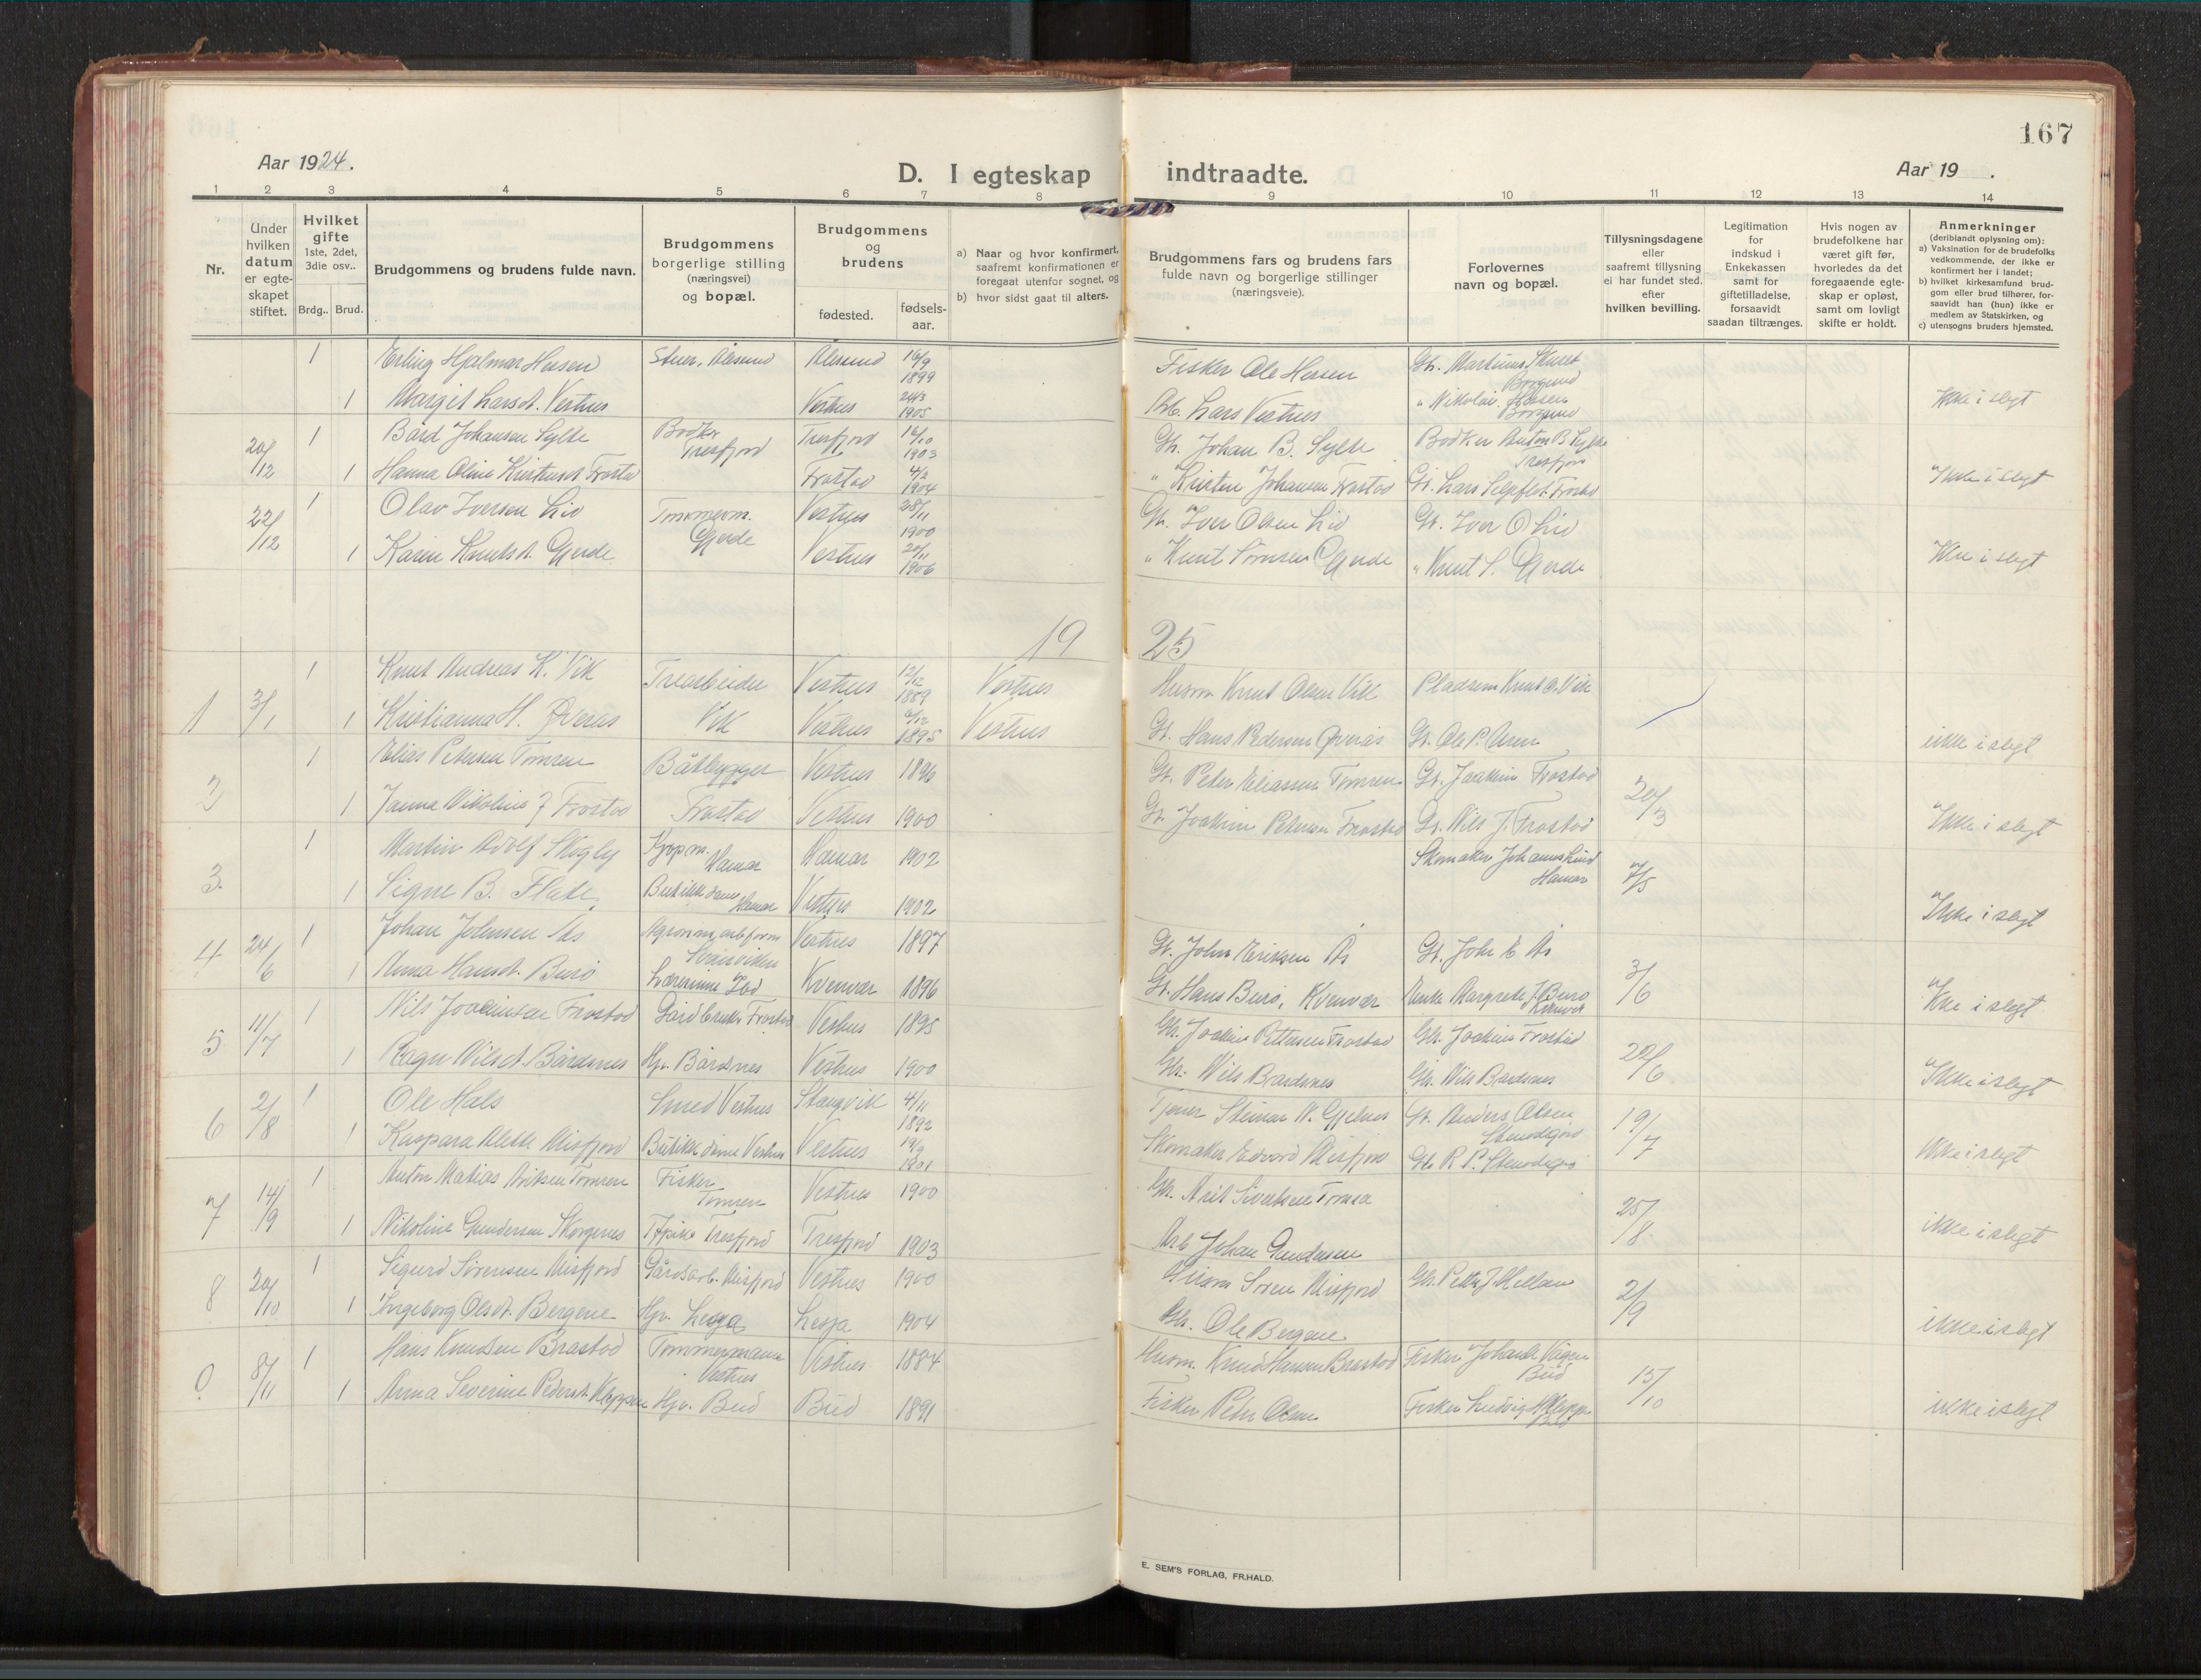 167
Aar 1924.
D. I egteskap indtraadte.
Aar 19 .
1 2 3 4 5 6 7 8 9 10 11 12 13 14
Nr.
Under hvilken datum er egte-skapet stiftet.
Hvilket gifte 1ste, 2det, 3die osv..
Brdg.. Brud.
Brudgommens og brudens fulde navn.
Brudgommens borgerlige stilling (næringsvei) og bopæl.
Brudgommens og brudens
fødested. fødsels-aar.
a) Naar og hvor konfirmert, saafremt konfirmationen er foregaat utenfor sognet, og
b) hvor sidst gaat til alters.
Brudgommens fars og brudens fars fulde navn og borgerlige stillinger (næringsveie).
Forlovernes navn og bopæl.
Tillysningsdagene eller saafremt tillysning ei har fundet sted. efter hvilken bevilling.
Legitimation for indskud i Enkekassen samt for giftetilladelse, forsaavidt saadan tiltrænges.
Hvis nogen av brudefolkene har været gift før, hvorledes da det foregaaende egte-skap er opløst, samt om lovligt skifte er holdt.
Anmerkninger (deriblandt oplysning om): a) Vaksination for de brudefolks vedkommende, der ikke er konfirmert her i landet; b) hvilket kirkesamfund brud-gom eller brud tilhører, for-saavidt han (hun) ikke er medlem av Statskirken, og c) utensogns bruders hjemsted.
1 Erling Hjalmar Hessen Ålesund Ålesund 16/9 1899 Fisker Ole Hessen Gbr. Martinus
Borgund
1 Margit Larsdt. Vestnes Vestnes 24/3 1905 Arb. Lars Vestnes " Nikolai Hessen Borgund Ikke i slegt
20/12 1 Bård Johansen Sylte Bødker Tresfjord Tresfjord 16/10 1903 Gb. Johan B. Sylte Bødker Anton B Sylte Tresfjord
1 Hanna Oline Kristensdt Frostad Frostad 4/2 1904 " Kristen Johansen Frostad Gb. Lars Frostad Ikke i slegt
22/12 1 Olav Iversen Lid Tømmerm. Gjerde Vestnes 28/11 1900 Gb. Iver Olsen Lid Gb. Iver O Lid
1 Karen Knutsdt. Gjerde Vestnes 20/11 1906 " Knut Gjerde " Knut S. Gjerde Ikke i slegt
1925
1 3/1 1 Knut Andreas K. Vik Trearbeider Vestnes 12/12 1889 Vestnes Husm Knut Olsen Vik Pladsem Knut O. Vik
1 Kristianna H. Øveraas Vik Vestnes 6/12 1895 Vestnes Gb. Hans Pedersen Øveraas Gb. Ole P. ikke i slegt
2 1 Elias Petersen Tomren Båtbygger Vestnes 1896 Gb. Peter Eliassen Tomren Gb. Joakim Frostad 20/3
1 Janna Nikoline J Frostad Frostad Vestnes 1900 Gb. Joakim Petersen Frostad Gb. Nils J. Frostad Ikke i slegt
3. 1 Martin Adolf Skogly Kjøpm. Hamar Hamar 1902 Skomaker Johannes Lund Hamar 7/5
1 Signe B. Flate. Butikkdame Hamar Vestnes 1902 Ikke i slegt
4 24/6 1 Johan Johnsen Ås Agronom, arb.form Vestnes 1897 Gb. John Eriksen Ås Gb. John E Ås 3/6
1 Anna Hansdt. Burø Lærerinne Kvenvær 1896 Gb. Hans Burø, Kvenvær Enke Margrete J. Burø Kvenvær Ikke i slegt
5 11/7 1 Nils Joakimsen Frostad Gårdbruker Frostad Vestnes 1895 Gb. Joakim Pettersen Frostad Gb. Joakim Frostad 20/6
1 Ragn Nilsdt. Bårdsnes Hjv. Bårdsnes Vestnes 1900 Gb. Nils Bårdsnes Gb. Nils Bårdsnes Ikke i slegt
6 2/8 1 Ole Hals Smed Vestnes Stangvik 4/11 1892 Tjener Steinar N. Gjelnes Gb. Anders Olsen 19/7
1 Kaspara Alette Misfjord Butikkdame Vestnes Vestnes 19/9 1901 Skomaker Edvard Misfjord Gb R. P. Ikke i slegt
7 14/9 1 Anton Matias Aritsen Tomren Fisker Tomren Vestnes 1900 Gb. Arit Sivertsen Tomren 25/8
1 Nikoline Gundersen Skorgenes Tresfjord Tresfjord 1903 Arb Johan Gundersen ikke i slegt
8 20/10 1 Sigurd Sørensen Misfjord Gårdsarb. Misfjord Vestnes 1900 Husm Søren Misfjord Gb. Petter J Mellem 2/9
1 Ingeborg Olsdt. Bergene Hjv. Lesja Lesja 1904 Gb. Ole Bergene ikke i slegt
9 8/11 1 Hans Knudsen Brastad Tømmermann Vestnes Vestnes 1884 Husm. Knud Hansen Brastad Fisker Johan Vågen Bud 15/10
1 Anna Severine Pedersdt. Kleppen Hjv. Bud Bud 1891 Fisker Peter Olsen Fisker Ludvig Kleppen Bud ikke i slegt
E. SEM'S FORLAG, FR.HALD.